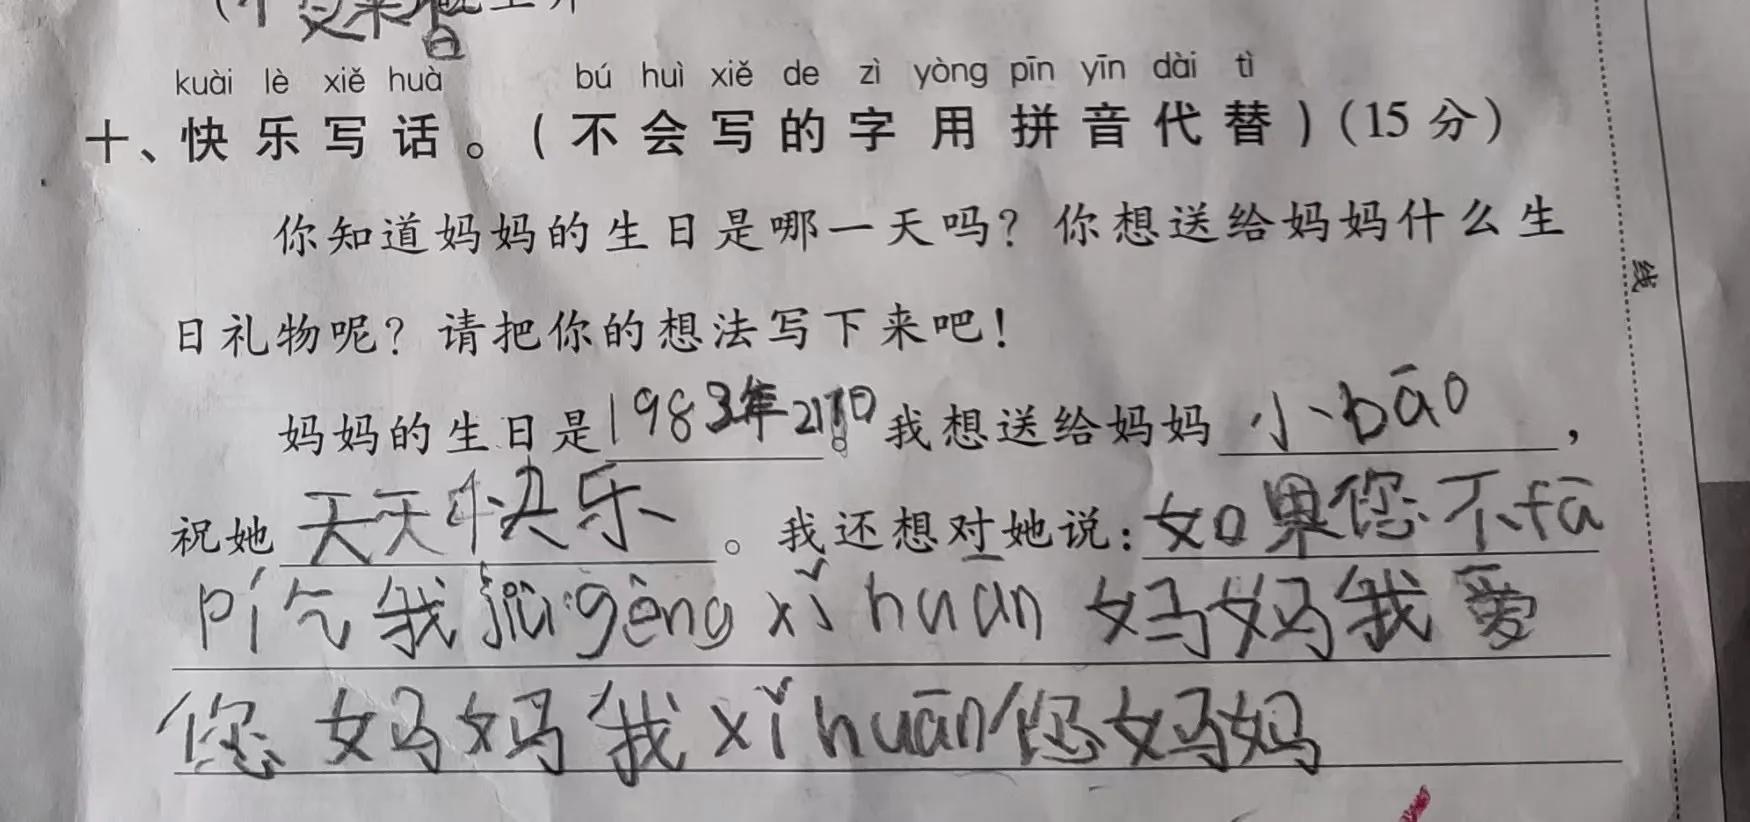 kuài lè xiě huà bú huì xiě de zì yòng pīn yīn dài tì
十、快乐写话。(不会写的字用拼音代替)(15分)
你知道妈妈的生日是哪一天吗?你想送给妈妈什么生
日礼物呢?请把你的想法写下来吧!
妈妈的生日是1983年 。我想送给妈妈小bāo,
祝她天天快乐。我还想对她说:如果您不fā
pí气我jiù gèng xǐ huān 妈妈我爱
您 妈妈我xǐ huān您妈妈
线